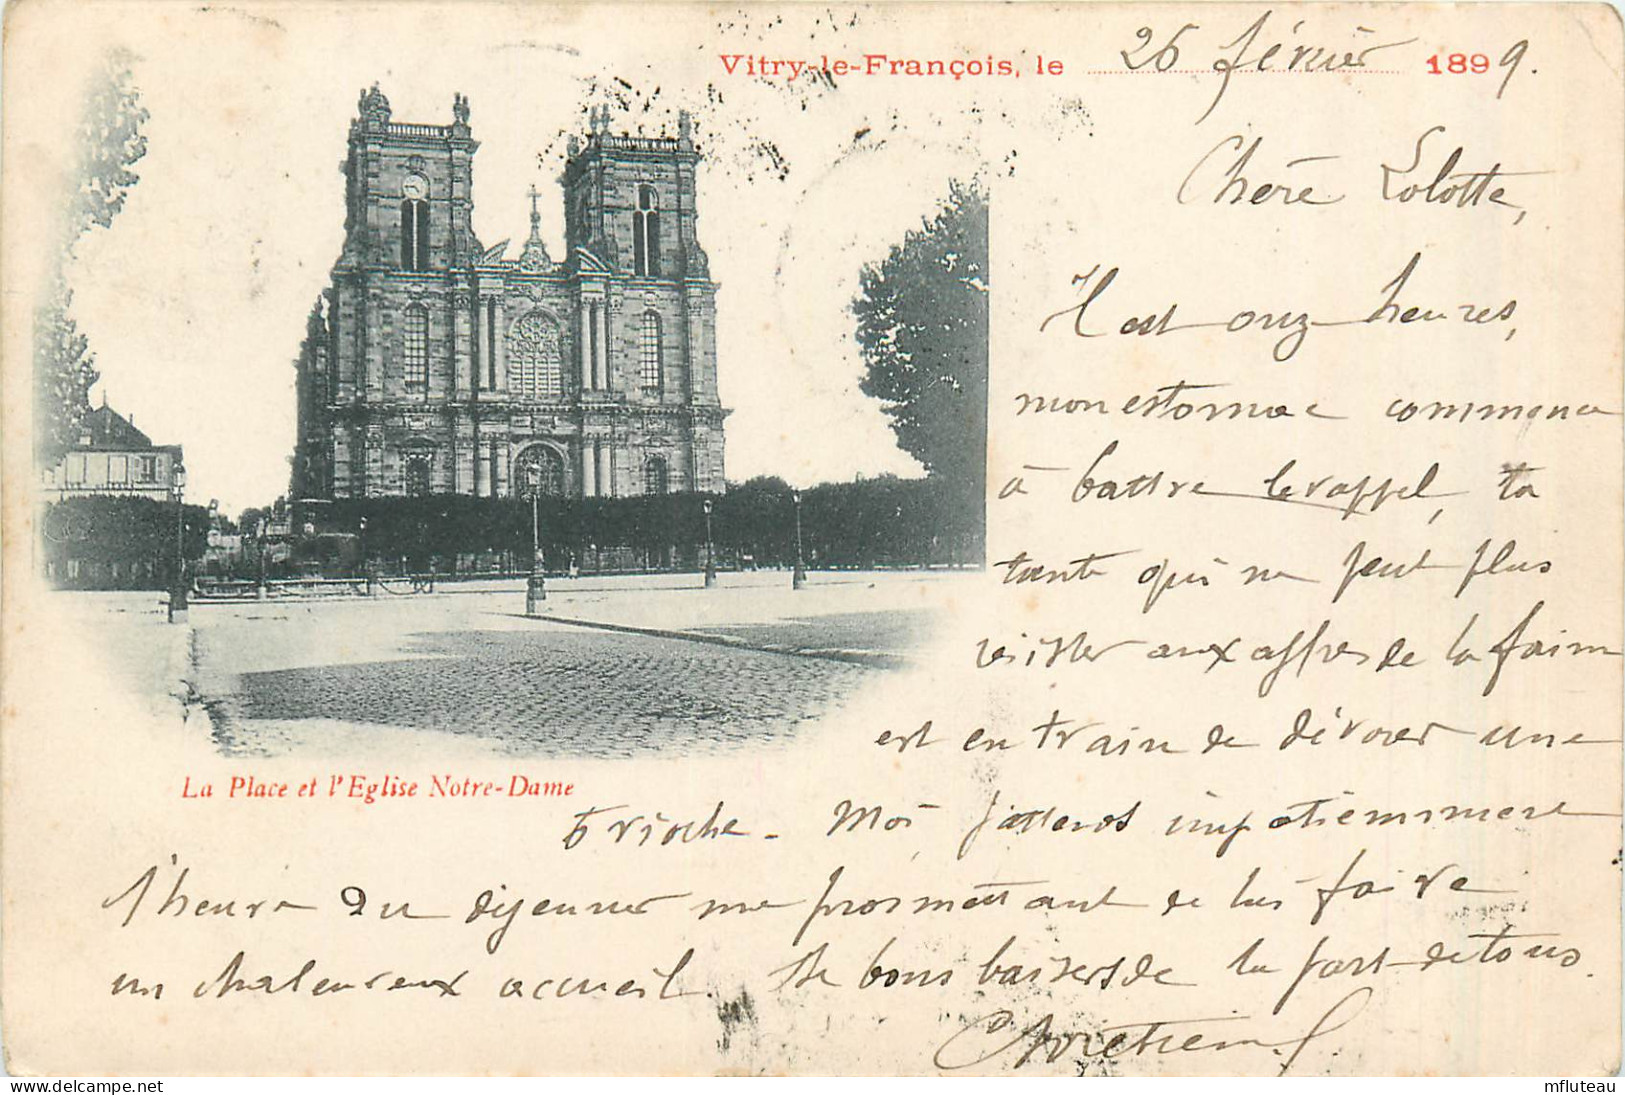 Vitry-le-François, le 26 février 1899.
Chère Lolotte,
Il est onz heures,
mon estomac commence
à battre le rappel, ta
tante qui ne peut plus
résister aux affres de la faim
est en train de dévorer une
La Place et l'Eglise Notre-Dame
brioche - Moi j'attends impatiemment
l'heure du déjeuner me promettant de lui faire
un chaleureux accueil. De bons baisers de la part de tous.
Chrétien
www.delcampe.net
mfluteau